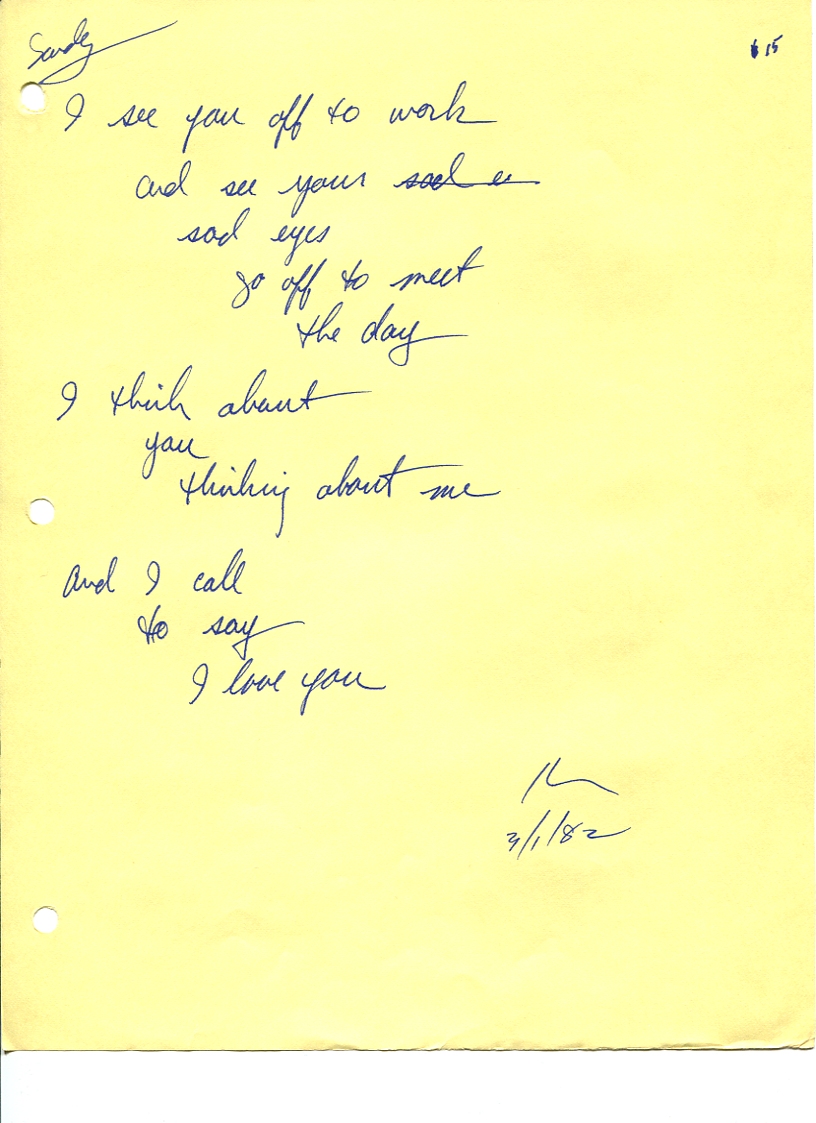 Sandy
15
I see you off to work
and see your sad e
sad eyes
go off to meet
the day
I think about
you
thinking about me
and I call
to say
I love you
3/1/82